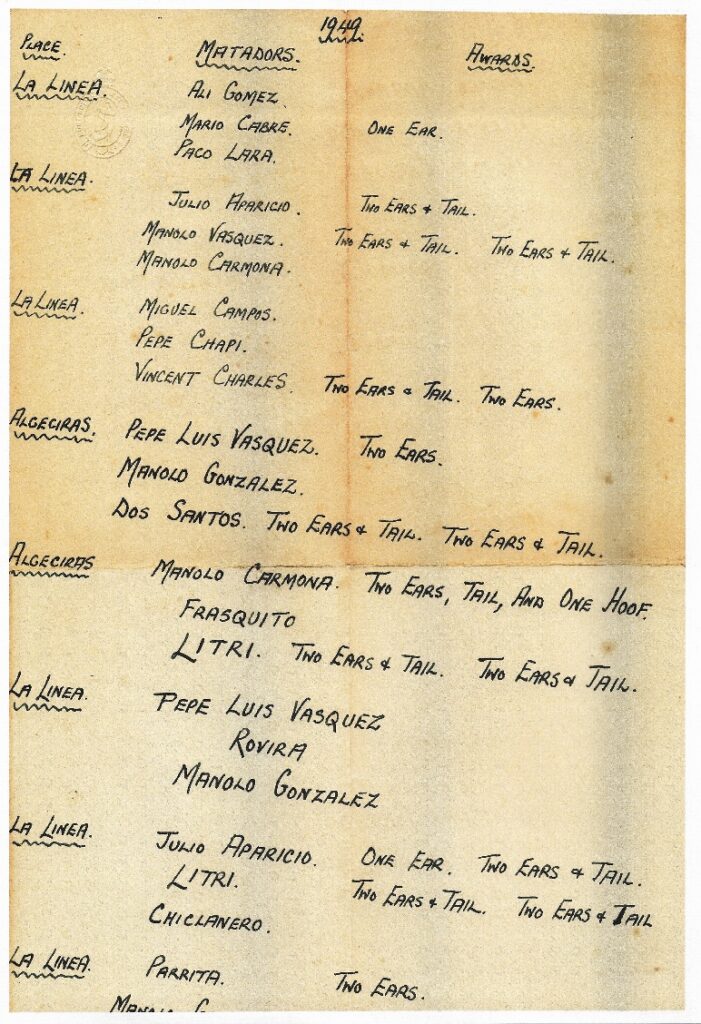 1949
PLACE. MATADORS. AWARDS.
LA LINEA. ALI GOMEZ.
MARIO CABRE. ONE EAR.
PACO LARA.
LA LINEA.
JULIO APARICIO. TWO EARS & TAIL.
MANOLO VASQUEZ. TWO EARS & TAIL. TWO EARS & TAIL.
MANOLO CARMONA.
LA LINEA. MIGUEL CAMPOS.
PEPE CHAPI.
VINCENT CHARLES. TWO EARS & TAIL. TWO EARS.
ALGECIRAS. PEPE LUIS VASQUEZ. TWO EARS.
MANOLO GONZALEZ.
DOS SANTOS. TWO EARS & TAIL. TWO EARS & TAIL.
ALGECIRAS MANOLO CARMONA. TWO EARS, TAIL, AND ONE HOOF.
FRASQUITO
LITRI. TWO EARS & TAIL. TWO EARS & TAIL.
LA LINEA. PEPE LUIS VASQUEZ
ROVIRA
MANOLO GONZALEZ
LA LINEA. JULIO APARICIO. ONE EAR. TWO EARS & TAIL.
LITRI. TWO EARS & TAIL. TWO EARS & TAIL
CHICLANERO.
LA LINEA. PARRITA. TWO EARS.
MANOLO G